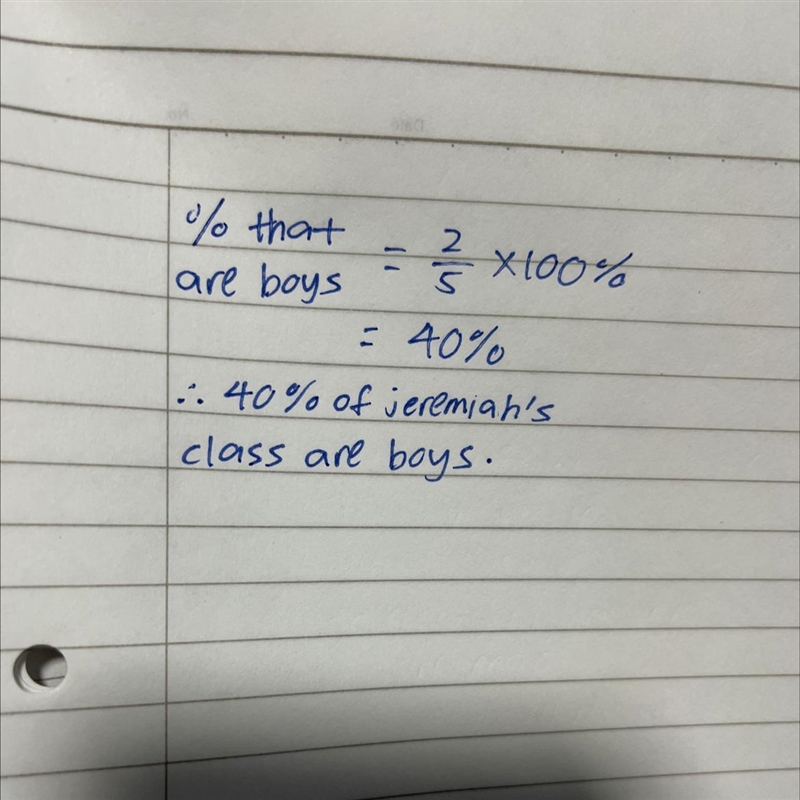 % that are boys = 2/5 ×100%
= 40%
∴ 40% of jeremiah's
class are boys.